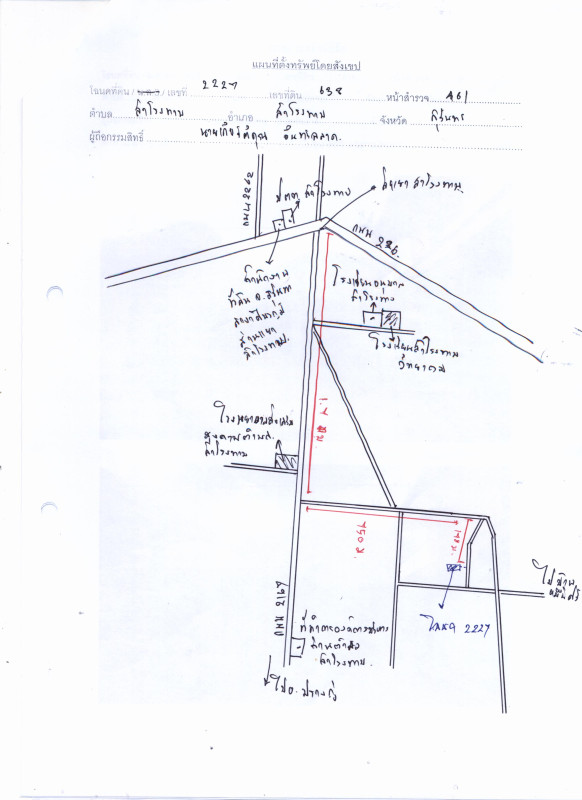 แผนที่ตั้งทรัพย์โดยสังเขป
โฉนดที่ดิน / น.ส.3 / เลขที่ 2227 เลขที่ดิน 638 หน้าสำรวจ 461
ตำบล สำโรงทาบ อำเภอ สำโรงทาบ จังหวัด สุรินทร์
ผู้ถือกรรมสิทธิ์
ถนน 2262
ปตท. สำโรงทาบ
สี่แยก สำโรงทาบ
ถนน 226
สำนักงาน
ที่ดิน จ.สุรินทร์
สาขาศีขรภูมิ
ส่วนแยก
สำโรงทาบ
โรงเรียนอนุบาล
สำโรงทาบ
โรงเรียนสำโรงทาบ
วิทยาคม
1.7 กม.
โรงพยาบาลส่งเสริม
สุขภาพตำบล
สำโรงทาบ
750 ม.
ไปบ้าน
โฉนด 2227
ถนน 2167
ที่ทำการองค์การบริหาร
ส่วนตำบล
สำโรงทาบ
ไป อ.ปรางค์กู่